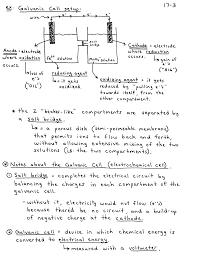 17-3
Galvanic Cell setup:
wire
e⁻
Anode = electrode
where oxidation
occurs.
Cathode = electrode
where reduction
occurs.
salt
bridge
solution
MnO₄⁻ solution
loss of
e⁻'s
("OIL")
reducing agent
b/c it gets
oxidized
gain of
e⁻'s
("RIG")
oxidizing agent = it gets
reduced by "pulling e⁻'s"
towards itself, from the
other compartment.
• the 2 "beaker-like" compartments are separated
by a salt bridge.
↳ = a porous disk (semi-permeable membrane)
that permits ions to flow back and forth,
without allowing extensive mixing of the two
solutions (in the two compartments).
Notes about the Galvanic Cell (electrochemical cell)
① Salt bridge = completes the electrical circuit by
balancing the charges in each compartment of the
galvanic cell.
- without it, electricity would not flow (e⁻'s)
because there'd be no circuit, and a build-up
of negative charge at the cathode.
② Galvanic cell = device in which chemical energy is
converted to electrical energy.
↳ measured with a voltmeter.